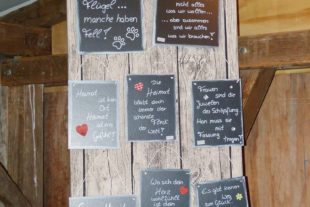 Flügel...
manche haben
Fell!
nicht alles
was wir wollen...
...aber zusammen
sind wir alles
was wir brauchen!
Heimat
ist kein
Ort
Heimat
ist ein
Gefühl!
Die
Heimat
bleibt doch
immer der
schönste
Fleck
der Welt!
Frauen
sind die
Juwelen
der Schöpfung
Man muss sie
mit
Fassung
tragen!
Wo sich dein
Herz
wohlfühlt
ist dein
Es gibt keinen
Weg zum
Glück